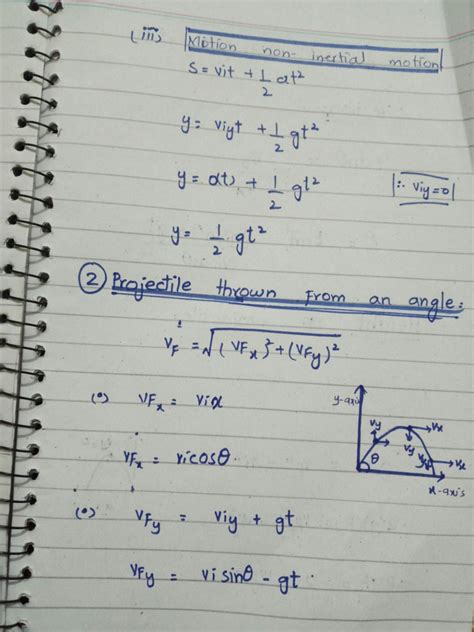 (iii) Motion non-inertial motion
S = vit + 1/2 at²
y = viyt + 1/2 gt²
y = o(t) + 1/2 gt² |∴ viy=0|
y = 1/2 gt²
② Projectile thrown from an angle:
vF = √(vFx)² + (vFy)²
(०) vFx = vix
vFx = vicosθ
(०) vFy = viy + gt
vFy = vi sinθ - gt
y-axis
vy
vx
vy
vy
vx
θ
x-axis